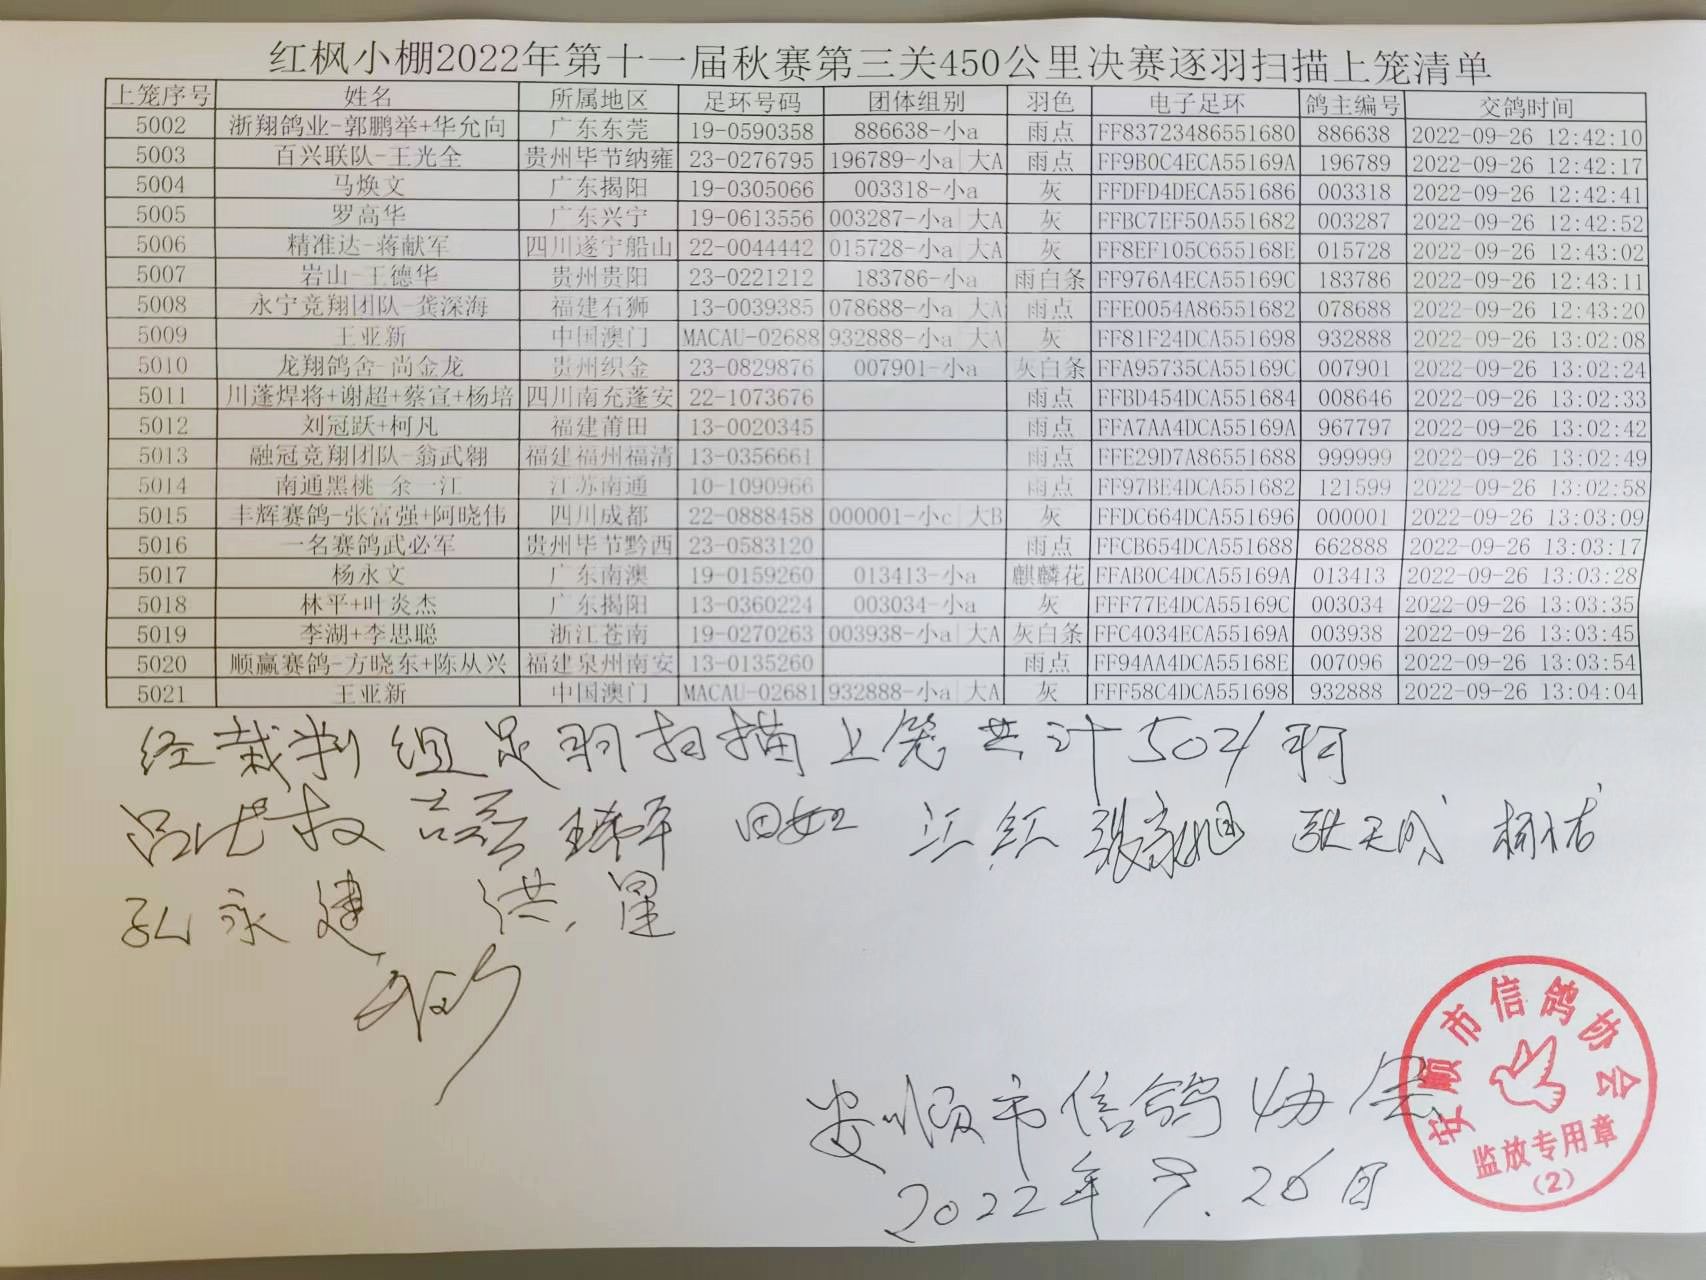 红枫小棚2022年第十一届秋赛第三关450公里决赛逐羽扫描上笼清单
上笼序号 姓名 所属地区 足环号码 团体组别 羽色 电子足环 鸽主编号 交鸽时间
5002 浙翔鸽业-郭鹏举+华允向 广东东莞 19-0590358 886638-小a 雨点 FF83723486551680 886638 2022-09-26 12:42:10
5003 百兴联队-王光全 贵州毕节纳雍 23-0276795 196789-小a|大A 雨点 FF9B0C4ECA55169A 196789 2022-09-26 12:42:17
5004 马焕文 广东揭阳 19-0305066 003318-小a 灰 FFDFD4DECA551686 003318 2022-09-26 12:42:41
5005 罗高华 广东兴宁 19-0613556 003287-小a|大A 灰 FFBC7EF50A551682 003287 2022-09-26 12:42:52
5006 精准达-蒋献军 四川遂宁船山 22-0044442 015728-小a|大A 灰 FF8EF105C655168E 015728 2022-09-26 12:43:02
5007 岩山-王德华 贵州贵阳 23-0221212 183786-小a 雨白条 FF976A4ECA55169C 183786 2022-09-26 12:43:11
5008 永宁竞翔团队-龚深海 福建石狮 13-0039385 078688-小a|大A 雨点 FFE0054A86551682 078688 2022-09-26 12:43:20
5009 王亚新 中国澳门 MACAU-02688 932888-小a|大A 灰 FF81F24DCA551698 932888 2022-09-26 13:02:08
5010 龙翔鸽舍-尚金龙 贵州织金 23-0829876 007901-小a 灰白条 FFA95735CA55169C 007901 2022-09-26 13:02:24
5011 川蓬焊将+谢超+蔡宣+杨培 四川南充蓬安 22-1073676 雨点 FFBD454DCA551684 008646 2022-09-26 13:02:33
5012 刘冠跃+柯凡 福建莆田 13-0020345 雨点 FFA7AA4DCA55169A 967797 2022-09-26 13:02:42
5013 融冠竞翔团队-翁武翱 福建福州福清 13-0356661 雨点 FFE29D7A86551688 999999 2022-09-26 13:02:49
5014 南通黑桃-余一江 江苏南通 10-1090966 雨点 FF97BE4DCA551682 121599 2022-09-26 13:02:58
5015 丰辉赛鸽-张富强+阿晓伟 四川成都 22-0888458 000001-小c|大B 灰 FFDC664DCA551696 000001 2022-09-26 13:03:09
5016 一名赛鸽武必军 贵州毕节黔西 23-0583120 雨点 FFCB654DCA551688 662888 2022-09-26 13:03:17
5017 杨永文 广东南澳 19-0159260 013413-小a 麒麟花 FFAB0C4DCA55169A 013413 2022-09-26 13:03:28
5018 林平+叶炎杰 广东揭阳 13-0360224 003034-小a 灰 FFF77E4DCA55169C 003034 2022-09-26 13:03:35
5019 李湖+李思聪 浙江苍南 19-0270263 003938-小a|大A 灰白条 FFC4034ECA55169A 003938 2022-09-26 13:03:45
5020 顺赢赛鸽-方晓东+陈从兴 福建泉州南安 13-0135260 雨点 FF94AA4DCA55168E 007096 2022-09-26 13:03:54
5021 王亚新 中国澳门 MACAU-02681 932888-小a|大A 灰 FFF58C4DCA551698 932888 2022-09-26 13:04:04
经裁判组足羽扫描上笼共计5021羽
江红 张家旭
孔永建 洪星
安顺市信鸽协会
2022年9.26日
安顺市信鸽协会
监放专用章
(2)